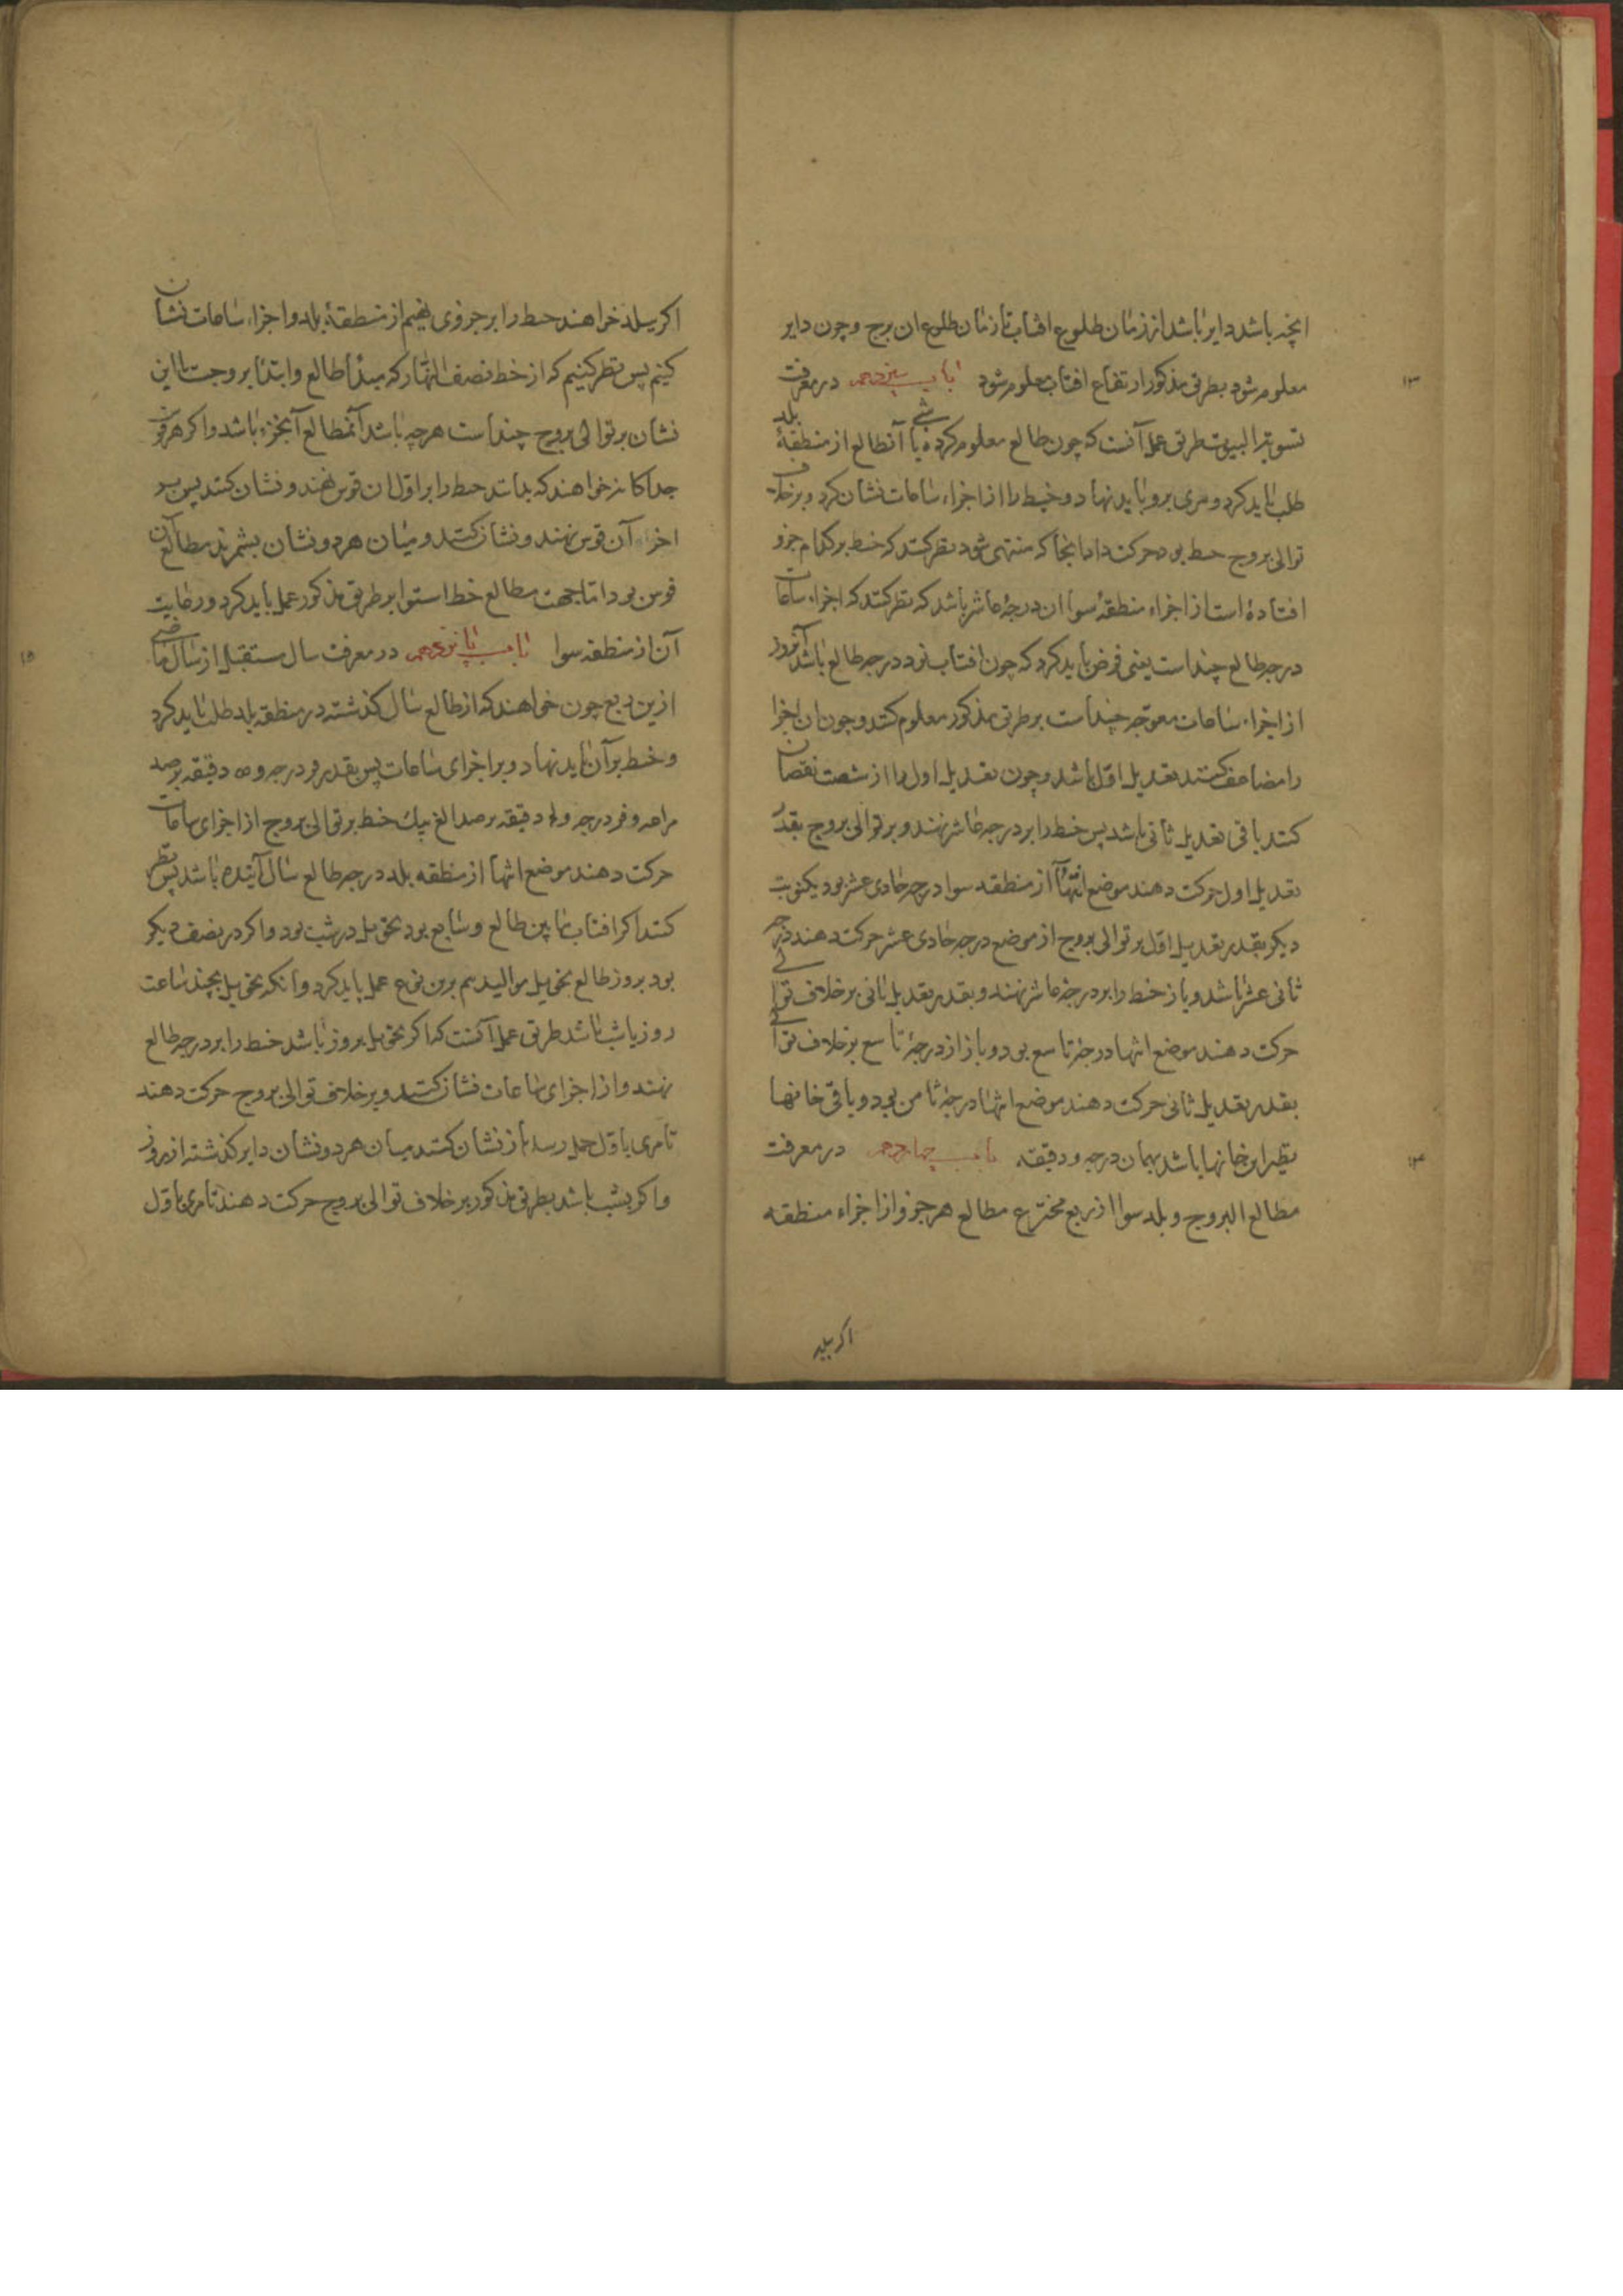 انچه باشد دایر باشد از زمان طلوع افتاب تا زمان طلوع ان برج و چون دایر
معلوم شود بطریق مذکور ارتفاع افتاب معلوم شود باب سیزدهم در معرفت
۱۳
تسویة البیوت طریق عمل آنست که چون طالع معلوم کرده باشی آنطالع از منطقهٔ بلد
طلب باید کرد و مری برو باید نهاد و خیط را از اجزاء ساعات نشان کرد و برخلاف
توالی بروج خیط بود حرکت داد تا بنجا که منتهی شود نظر کنند که خیط بر کدام جزو
افتاده است از اجزاء منطقهٔ سوا ان درجهٔ عاشر باشد که نظر کنند که اجزاء ساعات
درجه طالع چند است یعنی فرض باید کرد که چون افتاب بود در درجه طالع باشد آنروز
از اجزاء ساعات معوجه چند است بر طریق مذکور معلوم کنند و چون ان اجزا
را مضاعف کنند تعدیل اول باشد و چون تعدیل اول را از شصت نقصان
کنند باقی تعدیل ثانی باشد پس خیط را بر درجه عاشر نهند و بر توالی بروج بقدر
تعدیل اول حرکت دهند موضع انتها از منطقه سوا درجه حادی عشر بود یکنوبت
دیگر بقدر تعدیل اول بر توالی بروج از موضع درجه حادی عشر حرکت دهند درجه
ثانی عشر باشد و باز خیط را بر درجهٔ عاشر نهند و بقدر تعدیل ثانی برخلاف توالی
حرکت دهند موضع انتها درجهٔ تاسع بود و باز از درجهٔ تاسع برخلاف توالی
بقدر تعدیل ثانی حرکت دهند موضع انتها درجهٔ ثامن بود و باقی خانها
نظیر این خانها باشد بهمان درجه و دقیقه باب چهاردهم در معرفت
۱۴
مطالع البروج و بلد سوا از ربع مخترع مطالع هر جزو از اجزاء منطقه
اکر ببلد
اکر ببلد خواهند خیط را بر جزوی نهیم از منطقهٔ بلد و اجزاء ساعات نشان
کنیم پس نظر کنیم که از خط نصف النهار که مبدأ طالع وابتدا بروجست تا این
نشان بر توالی بروج چند است هرچه باشد آنمطالع آنجزء باشد و اکر هر قوس
جداکانه خواهند که بدانند خیط را بر اول ان قوس نهند و نشان کنند پس بر
اخر آن قوس نهند و نشان کنند و میان هر دو نشان بشمرند مطالع آن
قوس بود اما جهت مطالع خط استوا بر طریق مذکور عمل باید کرد و رعایت
آن از منطقه سوا باب پانزدهم در معرفت سال مستقبل از سال ماضی
۱۵
ازین ربع چون خواهند که از طالع سال کذشته در منطقه بلد طلب باید کرد
و خیط بر آن باید نهاد و بر اجزای ساعات پس بقدر فر درجه و دقیقه برصد
مراغه و فر درجه و دقیقه برصد الغ بیك خیط بر توالی بروج از اجزای ساعات
حرکت دهند موضع انتها از منطقه بلد درجه طالع سال آینده باشد پس نظر
کنند اکر افتاب مابین طالع و سابع بود تحویل در شب بود و اکر در نصف دیکر
بود بروز طالع تحویل موالید هم برین نوع عمل باید کرد و انکه تحویل بچند ساعت
روز یا شب باشد طریق عمل آنست که اکر تحویل بروز باشد خیط را بر درجه طالع
نهند و از اجزای ساعات نشان کنند و برخلاف توالی بروج حرکت دهند
تا مری باول حمل رسد باز نشان کنند میان هر دو نشان دایر کذشته از روز
و اکر بشب باشد بطریق مذکور برخلاف توالی بروج حرکت دهند تا مری باول